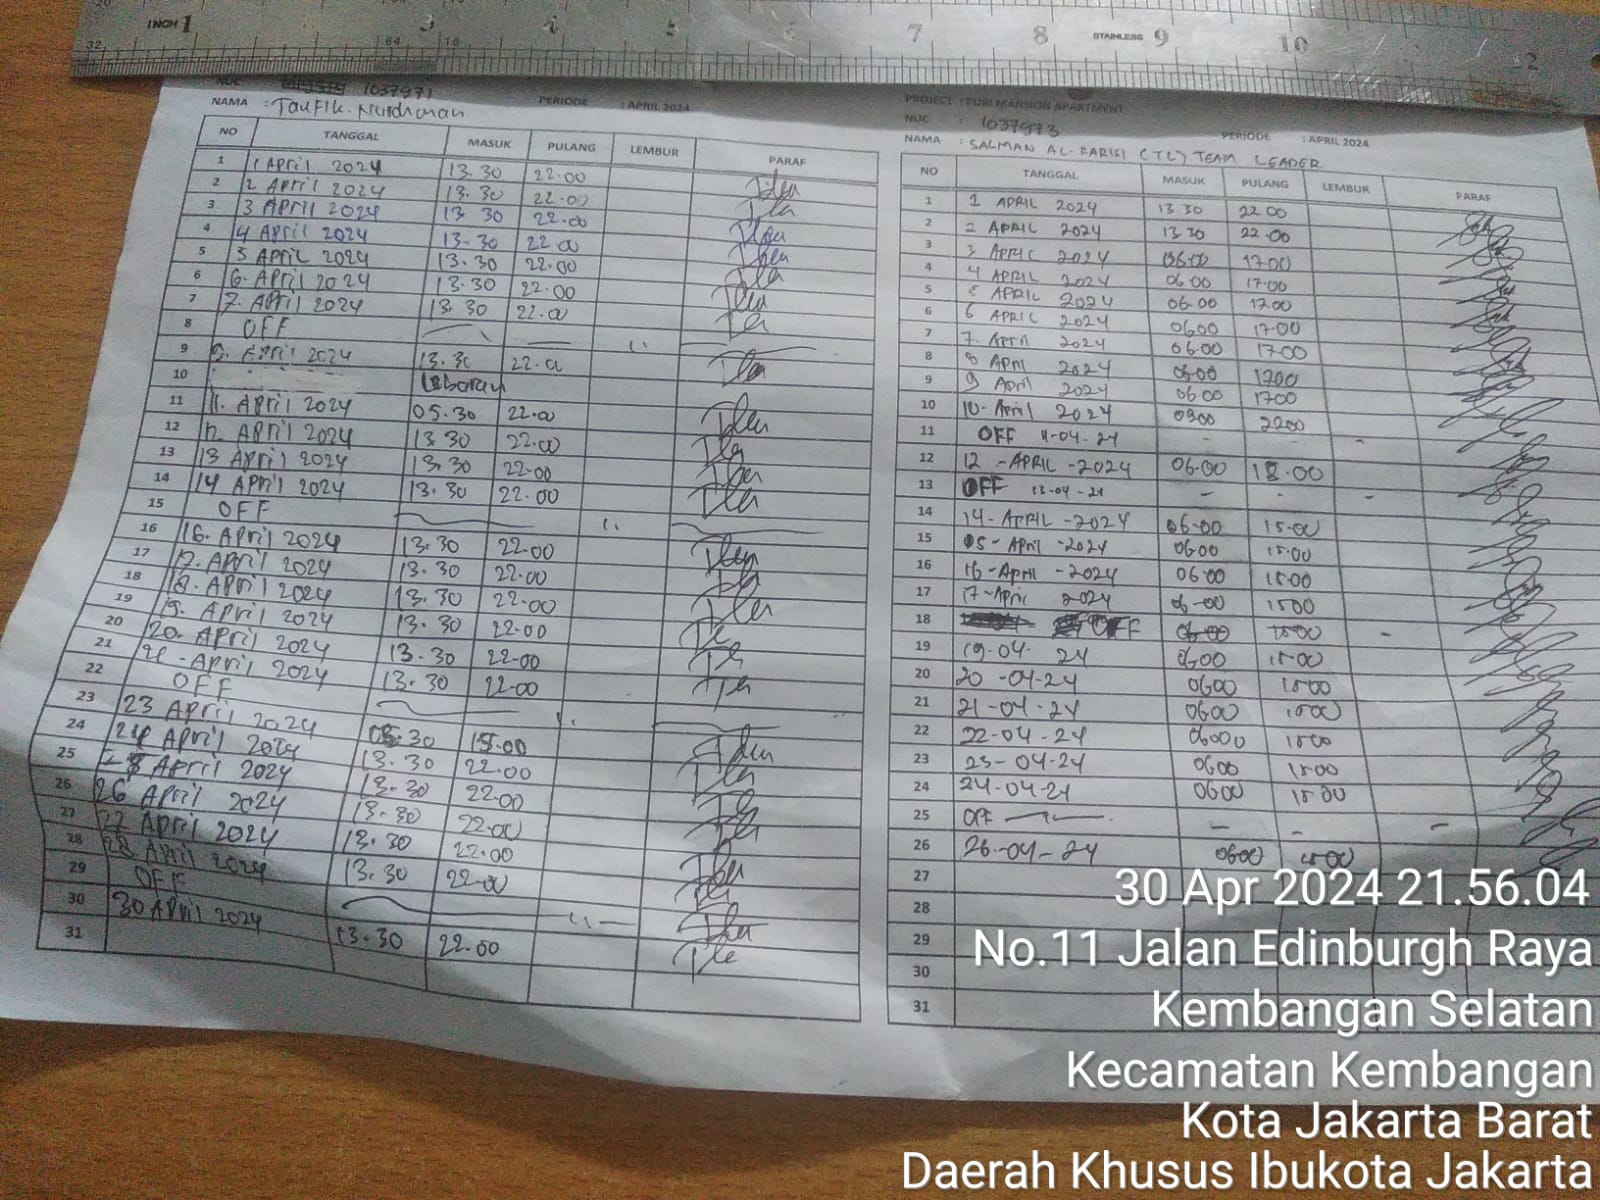 INCH 1 3 4 5 6 7 8 STAINLESS 9 10 2
32 64 16
NUC 1037971
NAMA : Taufik. Nurdiman PERIODE : APRIL 2024
NO TANGGAL MASUK PULANG LEMBUR PARAF
1 1 April 2024 13.30 22.00
2 2 April 2024 13.30 22.00
3 3 April 2024 13.30 22.00
4 4 April 2024 13.30 22.00
5 5 April 2024 13.30 22.00
6 6. April 2024 13.30 22.00
7 7. April 2024 13.30 22.00
8 OFF
9 9. April 2024 13.30 22.00
10 Lebaran
11 11. April 2024 05.30 22.00
12 12. April 2024 13.30 22.00
13 13 April 2024 13.30 22.00
14 14 April 2024 13.30 22.00
15 OFF
16 16. April 2024 13.30 22.00
17 17. April 2024 13.30 22.00
18 18. April 2024 13.30 22.00
19 19. April 2024 13.30 22.00
20 20. April 2024 13.30 22.00
21 21 - April 2024 13.30 22.00
22 OFF
23 23 April 2024 30 15.00
24 24 April 2024 13.30 22.00
25 April 2024 13.30 22.00
26 26 April 2024 13.30 22.00
27 27 April 2024 13.30 22.00
28 28 April 2024 13.30 22.00
29 OFF
30 30 April 2024 13.30 22.00
31
PROJECT : PURI MANSION APARTMENT
NUC : 1037973
NAMA : SALMAN AL-FARISI (TL) TEAM LEADER PERIODE : APRIL 2024
NO TANGGAL MASUK PULANG LEMBUR PARAF
1 1 APRIL 2024 13.30 22.00
2 2 APRIL 2024 13.30 22.00
3 3 APRIL 2024 06.00 17.00
4 4 APRIL 2024 06.00 17.00
5 5 APRIL 2024 06.00 17.00
6 6 APRIL 2024 06.00 17.00
7 7. April 2024 06.00 17.00
8 8 April 2024 06.00 1700
9 9 April 2024 06.00 1700
10 10. April 2024 0900 2200
11 OFF 11-04-24 - - -
12 12 - APRIL - 2024 06.00 18.00
13 OFF 13-04-24 - - -
14 14 - APRIL - 2024 06.00 15.00
15 15 - April - 2024 0600 15.00
16 16 - April - 2024 06.00 15.00
17 17 - April 2024 06-00 1500
18 OFF 06-00 1500 -
19 19-04- 24 0600 15.00
20 20 -04-24 0600 1500
21 21-04-24 0600 1500
22 22-04-24 06000 1500
23 23-04-24 0600 1500
24 24-04-24 0600 1500
25 OFF - - -
26 26-04-24 0600 1500
27
28
29
30
31
30 Apr 2024 21.56.04
No.11 Jalan Edinburgh Raya
Kembangan Selatan
Kecamatan Kembangan
Kota Jakarta Barat
Daerah Khusus Ibukota Jakarta